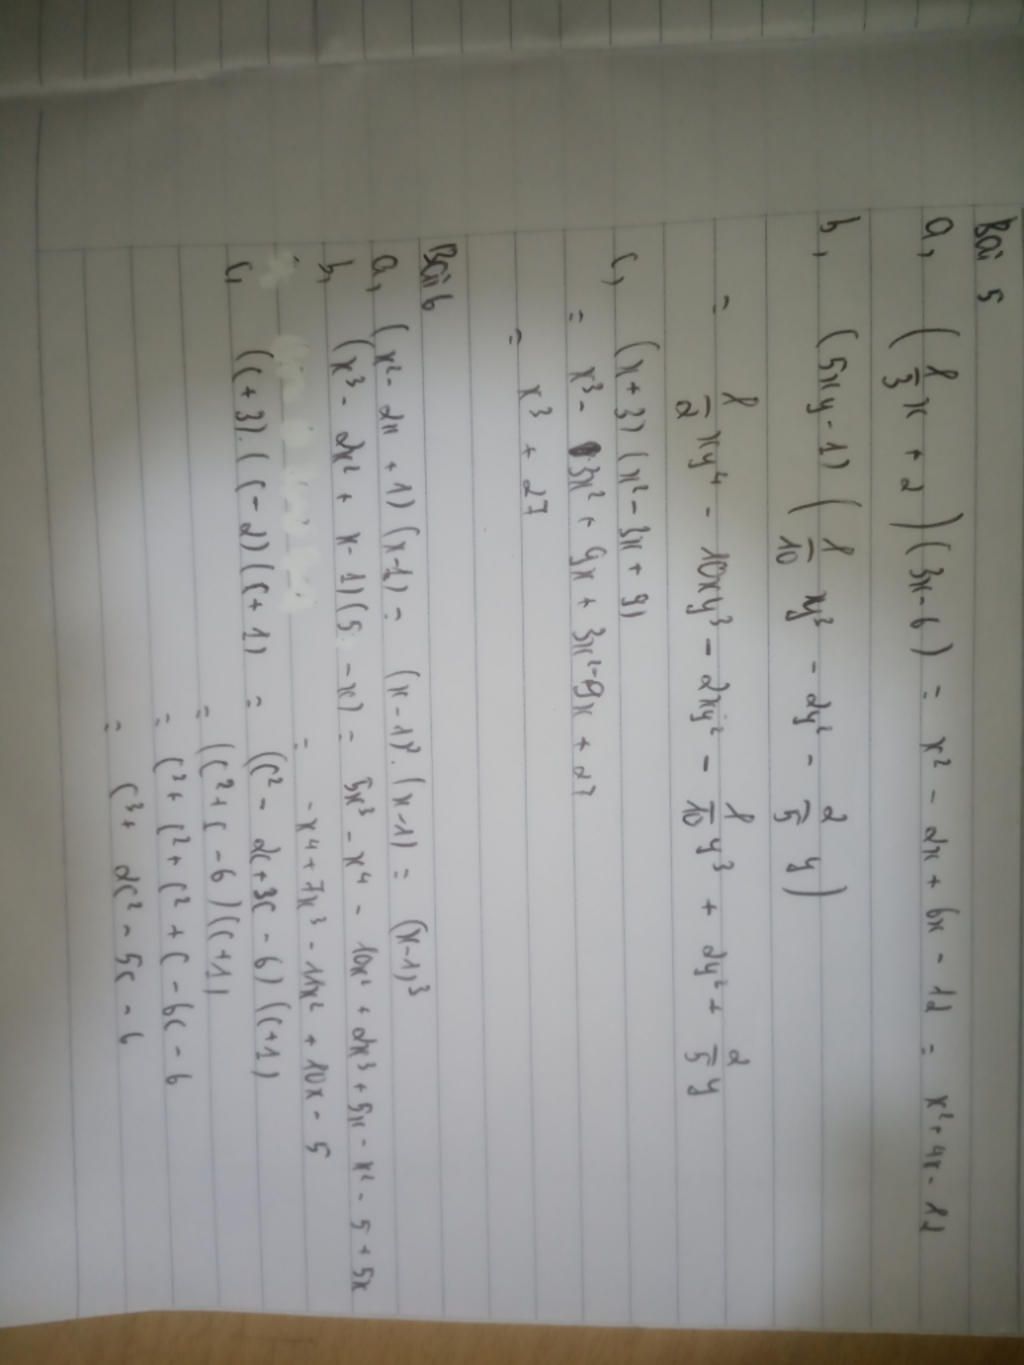 Bài 5
a, (1/3 x + 2)(3x - 6) = x² - 2x + 6x - 12 = x² + 4x - 12
b, (5xy - 1)(1/10 xy³ - 2y² - 2/5 y)
= 1/2 xy⁴ - 10xy³ - 2xy² - 1/10 y³ + 2y² + 2/5 y
c, (x + 3)(x² - 3x + 9)
= x³ - 3x² + 9x + 3x² - 9x + 27
= x³ + 27
Bài 6
a, (x² - 2x + 1)(x - 1) = (x - 1)². (x - 1) = (x - 1)³
b, (x³ - 2x² + x - 1)(5 - x) = 5x³ - x⁴ - 10x² + 2x³ + 5x - x² - 5 + 5x
= - x⁴ + 7x³ - 11x² + 10x - 5
c, (c + 3).(c - 2)(c + 1) = (c² - 2c + 3c - 6)(c + 1)
= (c² + c - 6)(c + 1)
= c³ + c² + c² + c - 6c - 6
= c³ + 2c² - 5c - 6